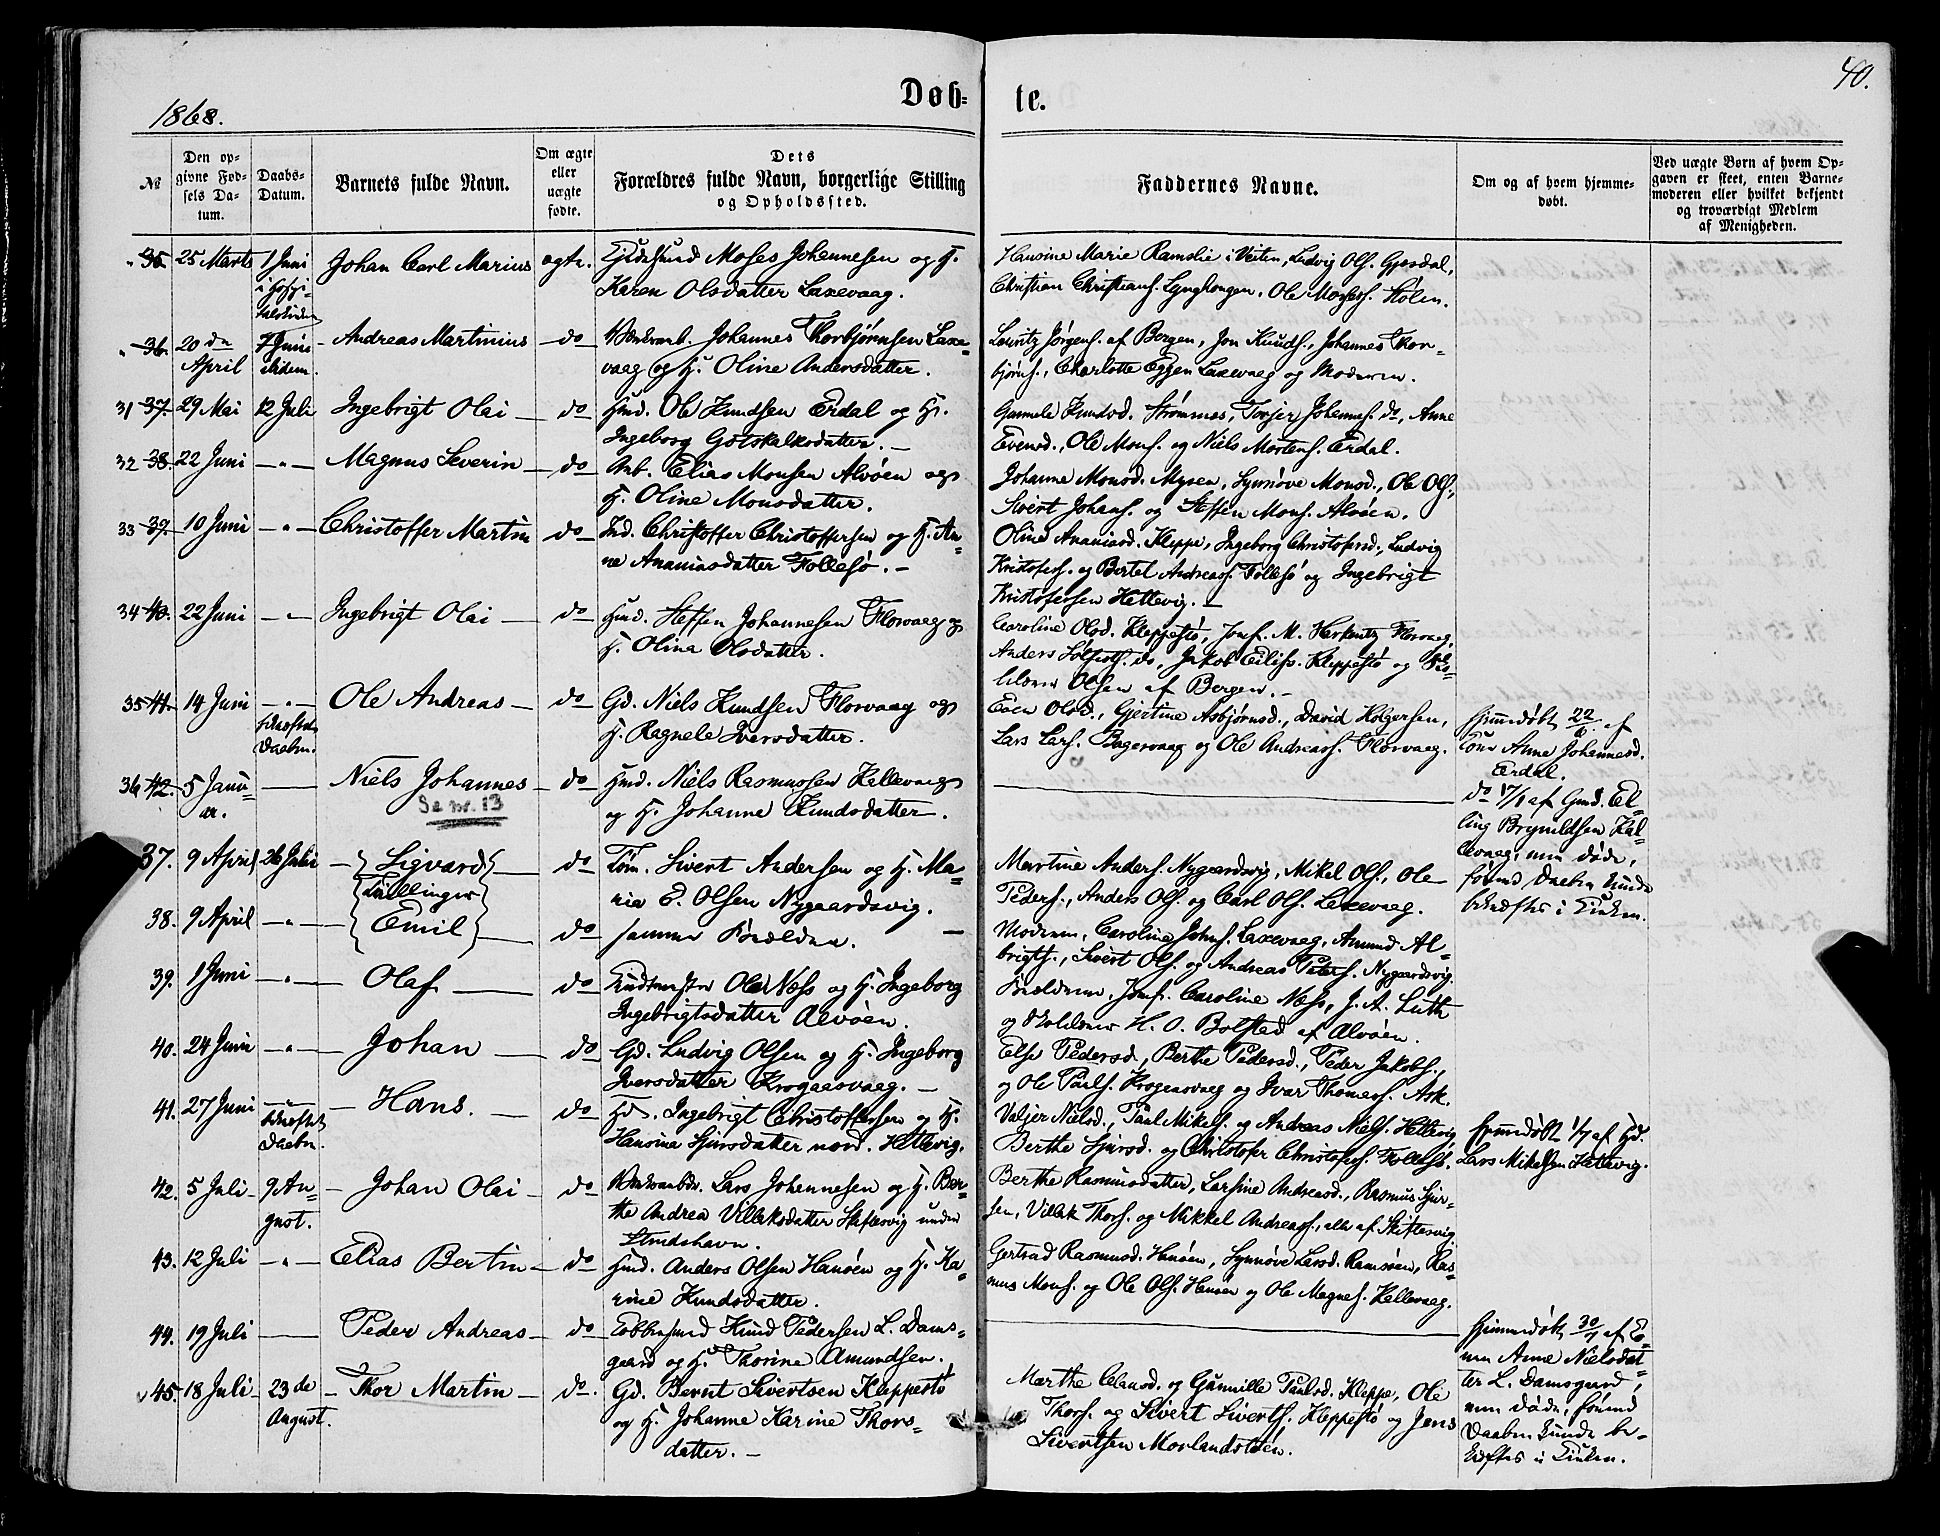 40.
1868.
Døb-
te.
№
Den op-
givne Fød-
sels Da-
tum.
Daabs-
Datum.
Barnets fulde Navn.
Om ægte
eller
uægte
fødte.
Dets
Forældres fulde Navn, borgerlige Stilling
og Opholdssted.
Faddernes Navne.
Om og af hvem hjemme-
døbt.
Ved uægte Børn af hvem Op-
gaven er skeet, enten Barne-
moderen eller hvilket bekjendt
og troværdigt Medlem
af Menigheden.
35. 25 Marts 1 Juni Johan Carl Marius ægte. Moses Johannesen og H.
Karen Olsdatter Laxevaag.
Hansine Marie Ramslie i Veiten, Ludvig Ols. Gjesdal,
Christian Christians. Lynghongen, Ole Moses. Stølen.
36. 20de April 7 Juni ibidem. Andreas Martinius do Johannes Thorbjørnsen Laxe-
vaag og H. Oline Andersdatter.
Louritz Jørgens. af Bergen, Jon Knuds., Johannes Thor-
bjørns., Charlotte Eggen Laxevaag og Moderen.
31 37. 29 Mai 12 Juli Ingebrigt Olai do Hmd. Ole Knudsen Erdal og H.
Ingeborg Gotskalksdatter.
Gunnele Knudsd. Strømnes, Torjer Johannes. do, Anne
Evensd., Ole Mons. og Niels Mortens. Erdal.
32 38. 22 Juni — " — Magnus Severin do Arb. Elias Monsen Alvøen og
H. Oline Monsdatter.
Johanne Monsd. Mysen, Synnøve Monsd., Ole Ols.,
Sivert Johans. og Steffen Mons. Alvøen.
33 39. 10 Juni — " — Christoffer Martin do Ind. Christoffer Christoffersen og H. An-
ne Ananiasdatter Follesø.
Oline Ananiasd. Kleppe, Ingeborg Christofersd., Ludvig
Kristofers. og Bertel Andreas. Follesø og Ingebrigt
Kristofersen Hettevig.
34 40. 22 Juni — " — Ingebrigt Olai do Hmd. Steffen Johannesen Florvaag og
H. Olina Olsdatter.
Caroline Olsd. Kleppestø, Jomf. M. Herknitz Florvaag,
Anders Solfests. do, Jakob Eiliss. Kleppestø og
Olsen af Bergen.
35 41. 14 Juni — " — Ole Andreas do Gd. Niels Knudsen Florvaag og
H. Ragnele Iversdatter.
Olsd., Gjertine Asbjørnsd., David Holgersen,
Lars Lars. Bagervaag og Ole Andreas. Florvaag.
Hjemdøbt 22/6 af
Anne Johannesd.
Erdal.
bekræftet
Daaben.
36 42. 5 Janu-
ar. Niels Johannes do Hmd. Niels Rasmussen Hallevaag
og H. Johanne Knudsdatter.
Se nr. 13
do 17/1 af Gmd. El-
ling Brynildsen Hal-
levaag, men døde,
førend Daaben kunde
bekræftes i Kirken.
37. 9 April 26 Juli Sigvard do Tøm. Sivert Andersen og H. Ma-
ria E. Olsen Nygaardsvig.
Tvillinger
Martine Anders. Nygaardsvig, Mikel Ols., Ole
Peders., Anders Ols. og Carl Ols. Laxevaag.
38. 9 April — " — Emil do samme Forældre.
Moderen, Caroline Johns. Laxevaag, Amund Al-
brigts., Sivert Ols. og Andreas Peters. Nygaardsvig.
39. 1 Juni — " — Olaf do Ole Næss og H. Ingeborg
Ingebrigtsdatter Alvøen.
Forældrene, Jomf. Caroline Næss, J. A. Luth
og Skolelærer H. O. Bolstad af Alvøen.
40. 24 Juni — " — Johan do Gd. Ludvig Olsen og H. Ingeborg
Iversdatter Krogaasvaag.
Else Pedersd., Berthe Pedersd., Peder Jakobs.,
og Ole Pauls. Krogaasvaag og Ivar Thomess. Ask.
41. 27 Juni — " — Hans. do Hd. Ingebrigt Christoffersen og H.
Hansina Sjursdatter nord. Hettevig.
bekræftet
Daaben.
Valjer Nielsd., Paul Mikels. og Andreas Niels. Hettevig
Berthe Sjursd. og Christofer Christofers. Follesø.
Hjemdøbt 1/7 af Hd.
Lars Mikelsen Hettevig.
42. 5 Juli 9 Au-
gust. Johan Olai do Lars Johannesen og H. Ber-
the Andrea Villaksdatter Skiftesvig under
Strudshavn.
Berthe Rasmusdatter, Larsine Andreasd., Rasmus Sjur-
sen, Villak Thors. og Mikkel Andreass., alle af Skiftesvig
43. 12 Juli — " — Elias Bertin do Hmd. Anders Olsen Hanøen og H. Ka-
rine Knudsdatter.
Gertrud Rasmusd. Hanøen, Synnøve Larsd. Ramsøen, Ras-
mus Mons. og Ole Ols. Hanøen og Ole Magnes. Hallevaag.
44. 19 Juli Peder Andreas do Knud Pedersen L. Dams-
gaard og H. Thorine Amundsen.
Hjemmedøbt 30/7 af
Anne Nielsdat-
ter L. Damsgaard,
men døde, førend
Daaben kunde be-
kræftes i Kirken.
45. 18 Juli 23de
August. Thor Martin do. Gd. Bernt Sivertsen Kleppestø
og H. Johanne Karine Thors-
datter.
Marthe Clausd. og Gunnille Paulsd. Kleppe, Ole
Thors. og Sivert Siverts. Kleppestø og Jens
Sivertsen Morlandstøen.